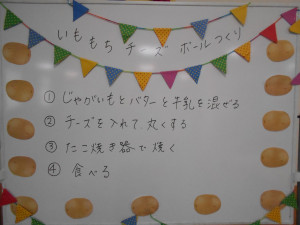 いももちチーズボールつくり
① じゃがいもとバターと牛乳を混ぜる
② チーズを入れて丸くする
③ たこ焼き器で焼く
④ 食べる